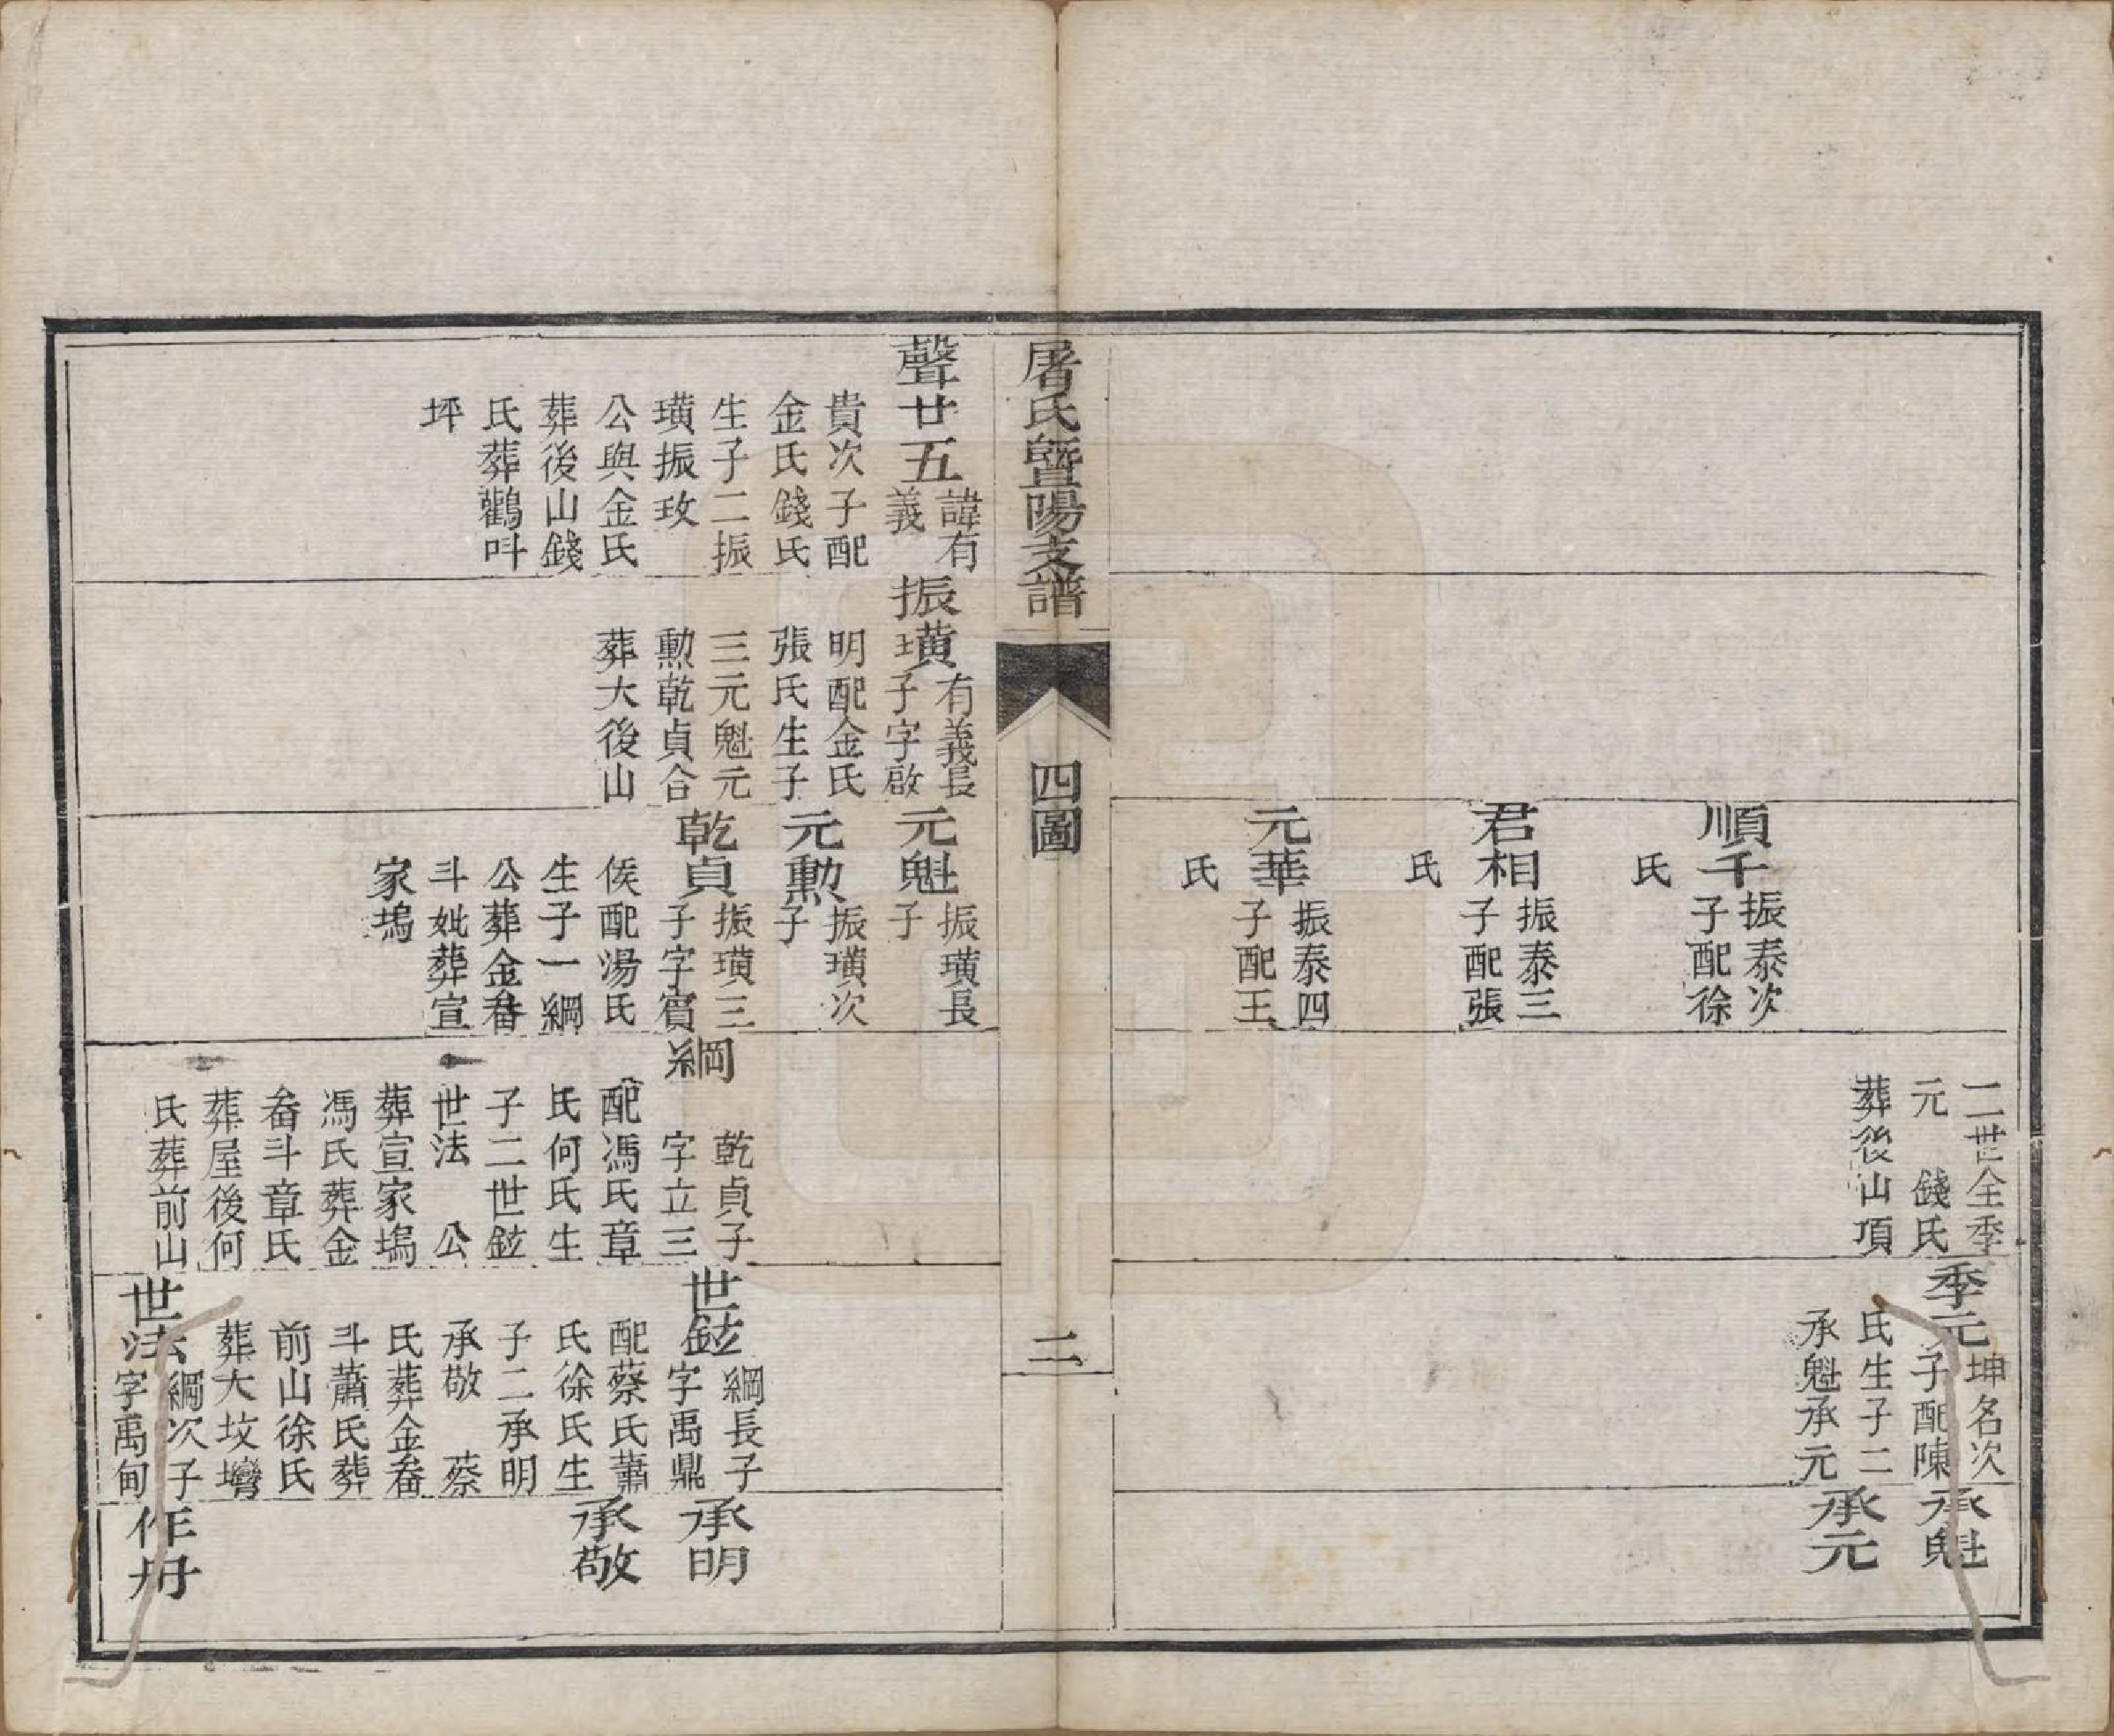 順千 振泰次子配徐氏
君相 振泰三子配張氏
元華 振泰四子配王氏
二世全季
元 錢氏
葬後山項
季元 坤名次子配陳
氏生子二
承魁承元
承魁
承元
屠氏暨陽支譜
四圖
二
聲廿五 諱有義
貴次子配
金氏錢氏
生子二振
璜振玫
公與金氏
葬後山錢
氏葬鸛叫
坪
振璜 有義長子字啟
明配金氏
張氏生子
三元魁元
勲乾貞合
葬大後山
元魁 振璜長子
元勲 振璜次子
乾貞 振璜三子字賓
侯配湯氏
生子一綱
公葬金畚
斗妣葬宣
家塢
綱 乾貞子字立三
配馮氏章
氏何氏生
子二世鉉
世法 公
葬宣家塢
馮氏葬金
畚斗章氏
葬屋後何
氏葬前山
世鉉 綱長子字禹鼎
配蔡氏蕭
氏徐氏生
子二承明
承敬 蔡
氏葬金畚
斗蕭氏葬
前山徐氏
葬大坟壪
世法 綱次子字禹甸
承明
承敬
作丹